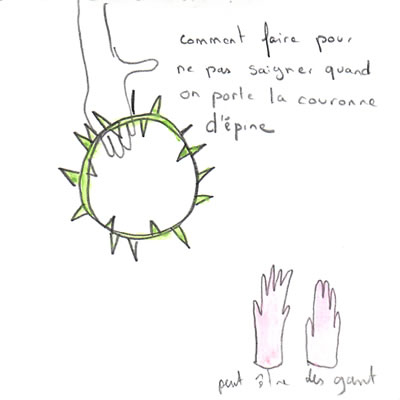 comment faire pour
ne pas saigner quand
on porte la couronne
d'épine
peut être des gant